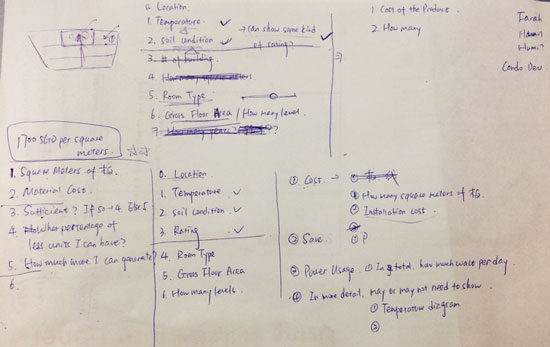 0. Location
1. Temperature ✓
2. Soil condition ✓ → Can show some kind
of rating?
3. # of building
4. How many square meters
5. Room Type
6. Gross Floor Area / How many levels.
7. How many years?
1. Cost of the Produce
2. How many
Farah
Condo Dev
1700 SGD per square
meters.
1. Square Meters of
2. Material Cost.
3. Sufficient? If so → 4 Else 5
4. percentage of
less units I can have?
5. How much more I can generate?
6.
0. Location
1. Temperature ✓
2. Soil condition ✓
3. Rating ✓
4. Room Type
5. Gross Floor Area
6. How many levels.
① Cost →
How many square meters of
Installation cost.
③ Save ① P
② Power Usage. ① In total, how much wave per day.
④ In more detail, may or may not need to show.
① Temperature diagram
②